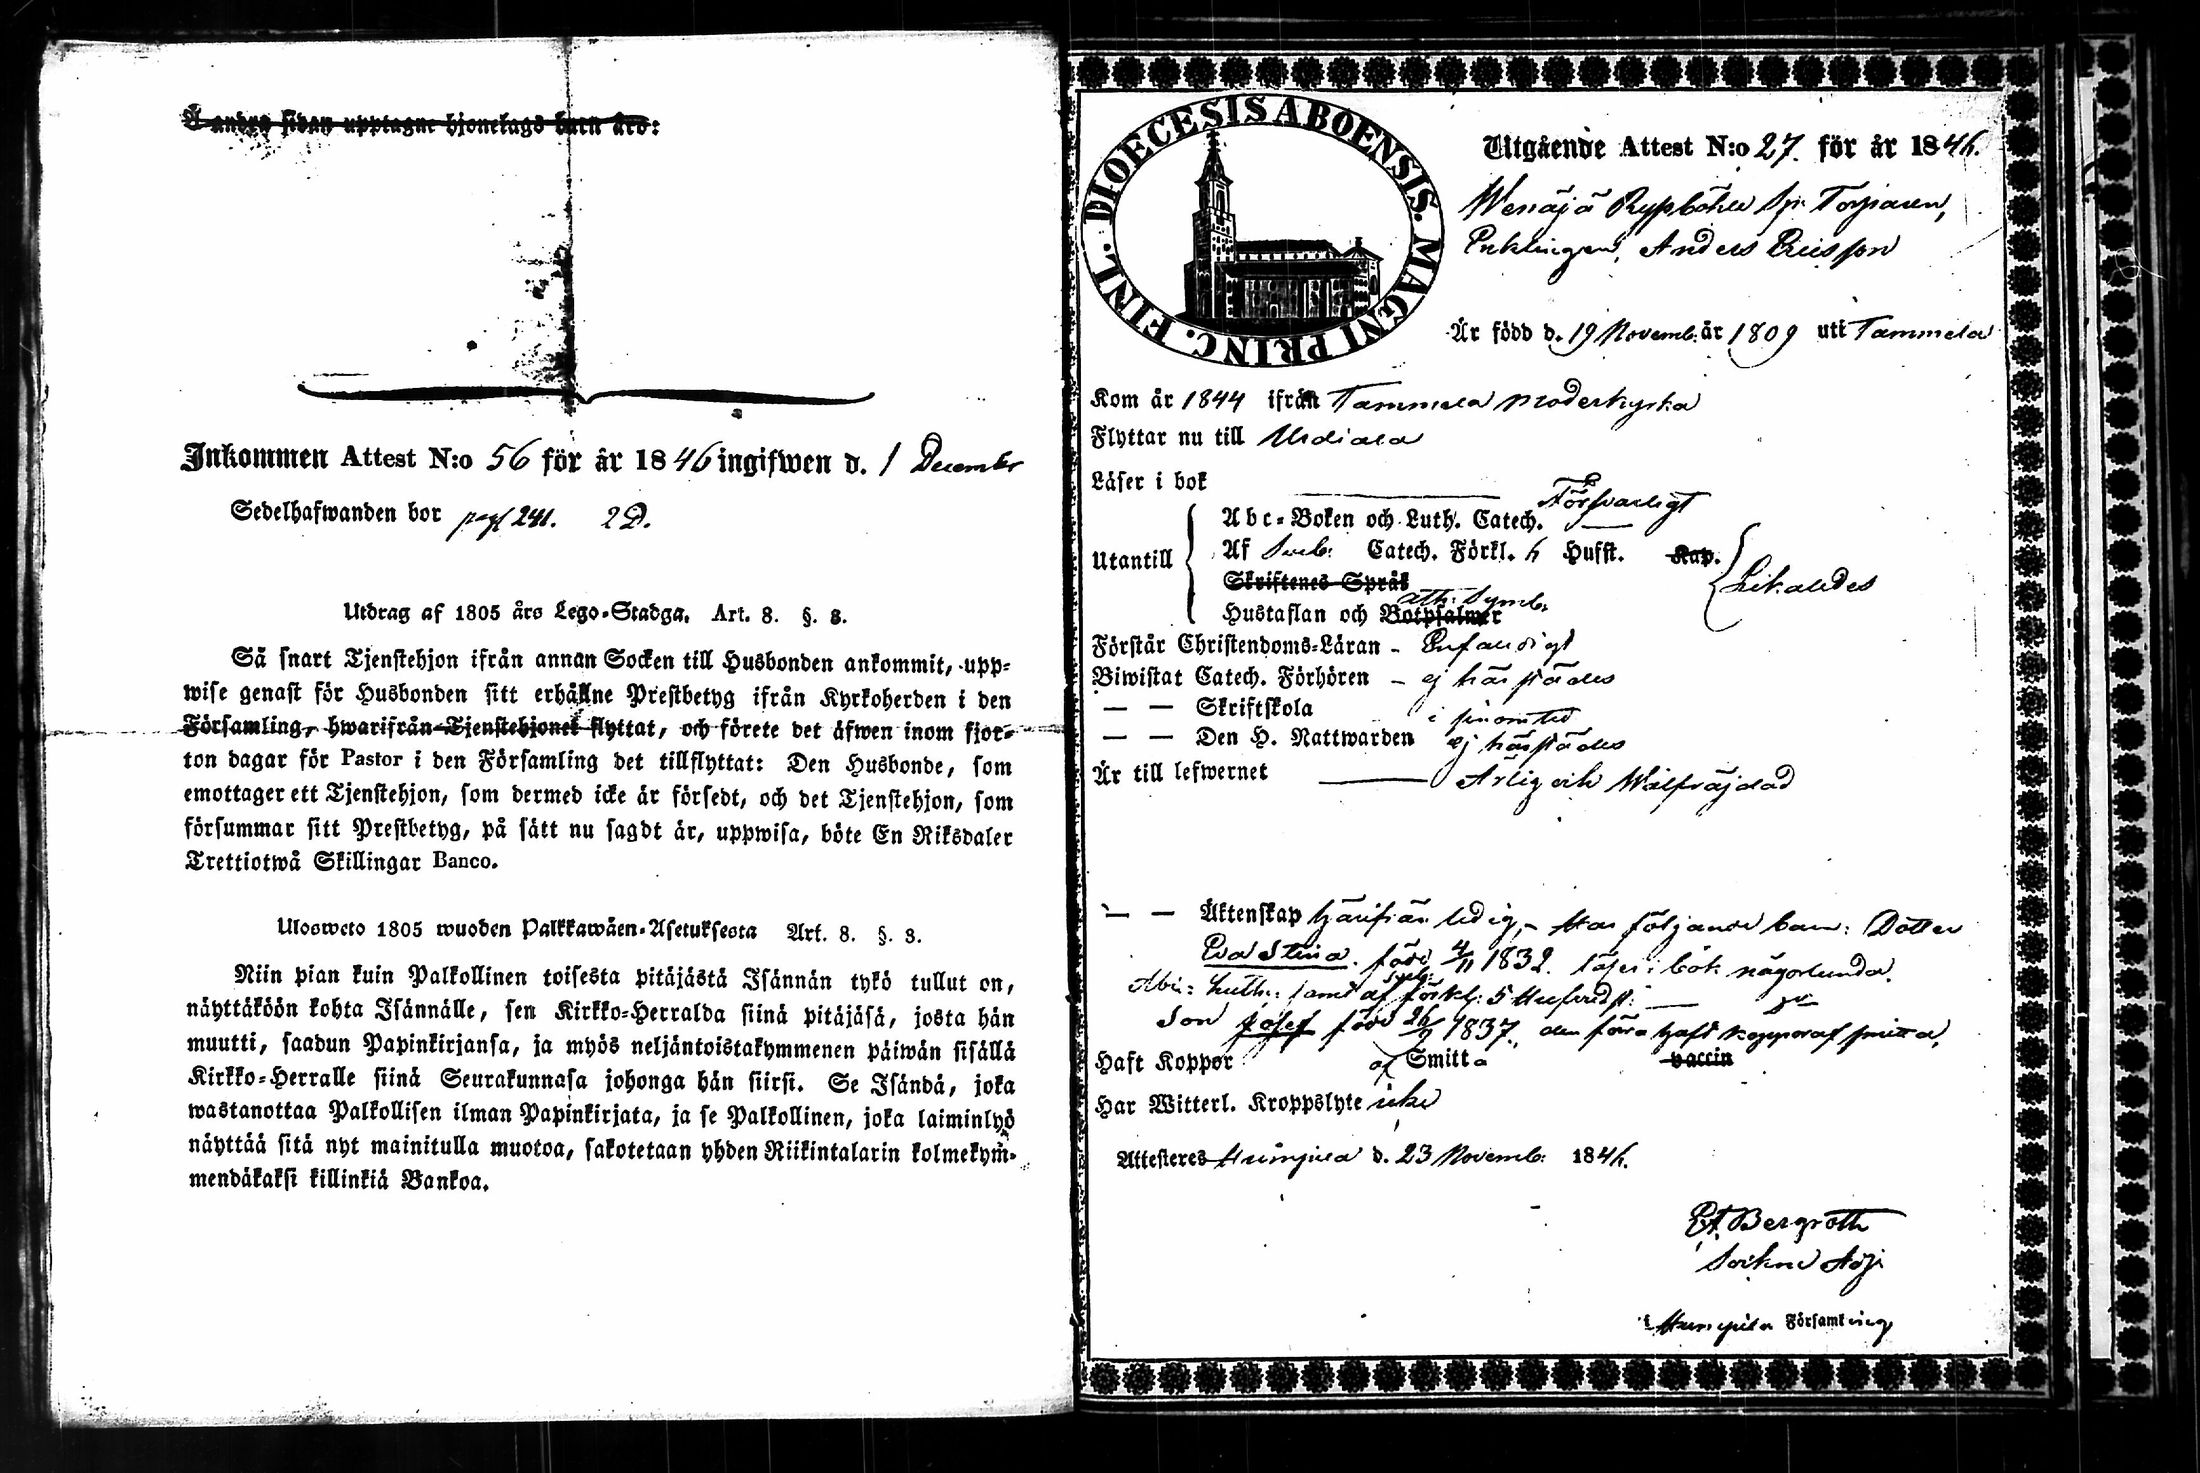 Å andra sidan upptagne hjonelags barn äro:
Inkommen Attest N:o 56 för år 1846 ingifwen d. 1 December
Sedelhafwanden bor pag 241. 2 D.
Utdrag af 1805 års Lego-Stadga, Art. 8. §. 3.
Så snart Tjenstehjon ifrån annan Socken till Husbonden ankommit, upp-
wise genast för Husbonden sitt erhållne Prestbetyg ifrån Kyrkoherden i den
Församling, hwarifrån Tjenstehjonet flyttat, och förete det äfwen inom fjor-
ton dagar för Pastor i den Församling det tillflyttat: Den Husbonde, som
emottager ett Tjenstehjon, som dermed icke är försedt, och det Tjenstehjon, som
försummar sitt Prestbetyg, på sätt nu sagdt är, uppwisa, böte En Riksdaler
Trettiotwå Skillingar Banco.
Ulosweto 1805 wuoden Palkkawäen-Asetuksesta Art. 8. §. 3.
Niin pian kuin Palkollinen toisesta pitäjästä Isännän tykö tullut on,
näyttäköön kohta Isännälle, sen Kirkko-Herralda siinä pitäjäsä, josta hän
muutti, saadun Papinkirjansa, ja myös neljäntoistakymmenen päiwän sisällä
Kirkko-Herralle siinä Seurakunnasa johonga hän siirsi. Se Isändä, joka
wastanottaa Palkollisen ilman Papinkirjata, ja se Palkollinen, joka laiminlyö
näyttää sitä nyt mainitulla muotoa, sakotetaan yhden Riikintalarin kolmekym-
mendäkaksi killinkiä Bankoa.
DIOECESIS ABOENSIS. MAGNI PRINC. FINL.
Utgående Attest N:o 27. för år 1846.
Torparen,
Enklingen, Anders Ericsson
Är född d. 19 Novemb. år 1809 uti Tammela
Kom år 1844 ifrån Tammela Moderkyrka
Flyttar nu till Urdiala
Läser i bok Försvarligt
Abc-Boken och Luth. Catech.
Utantill Af Sveb: Catech. Förkl. 4 Hufst. Kap. Likaledes
Skriftenes Språk
Ath: Symb:
Hustaflan och Botpsalmer
Förstår Christendoms-Läran - Enfaldigt
Biwistat Catech. Förhören - ej härstädes
— — Skriftskola i sinom tid
— — Den H. Nattwarden ej härstädes
Är till lefwernet Ärlig och Wälfräjdad
— — Äktenskap härifrån ledig, - Har följande barn: Dotter
Eva Stina. född 4/11 1832. läser i bok någorlunda.
Abc: Luth: samt af Sveb: förkl: 5 Hufvudst:
Son Josef född 26/9 1837., den förra haft koppor af smitta.
Haft Koppor af Smitta vaccin
Har Witterl. Kroppslyte icke
Attesteres Humppila d. 23 Novemb: 1846.
Bergroth
Sockne Adj:
i Humppila Församling